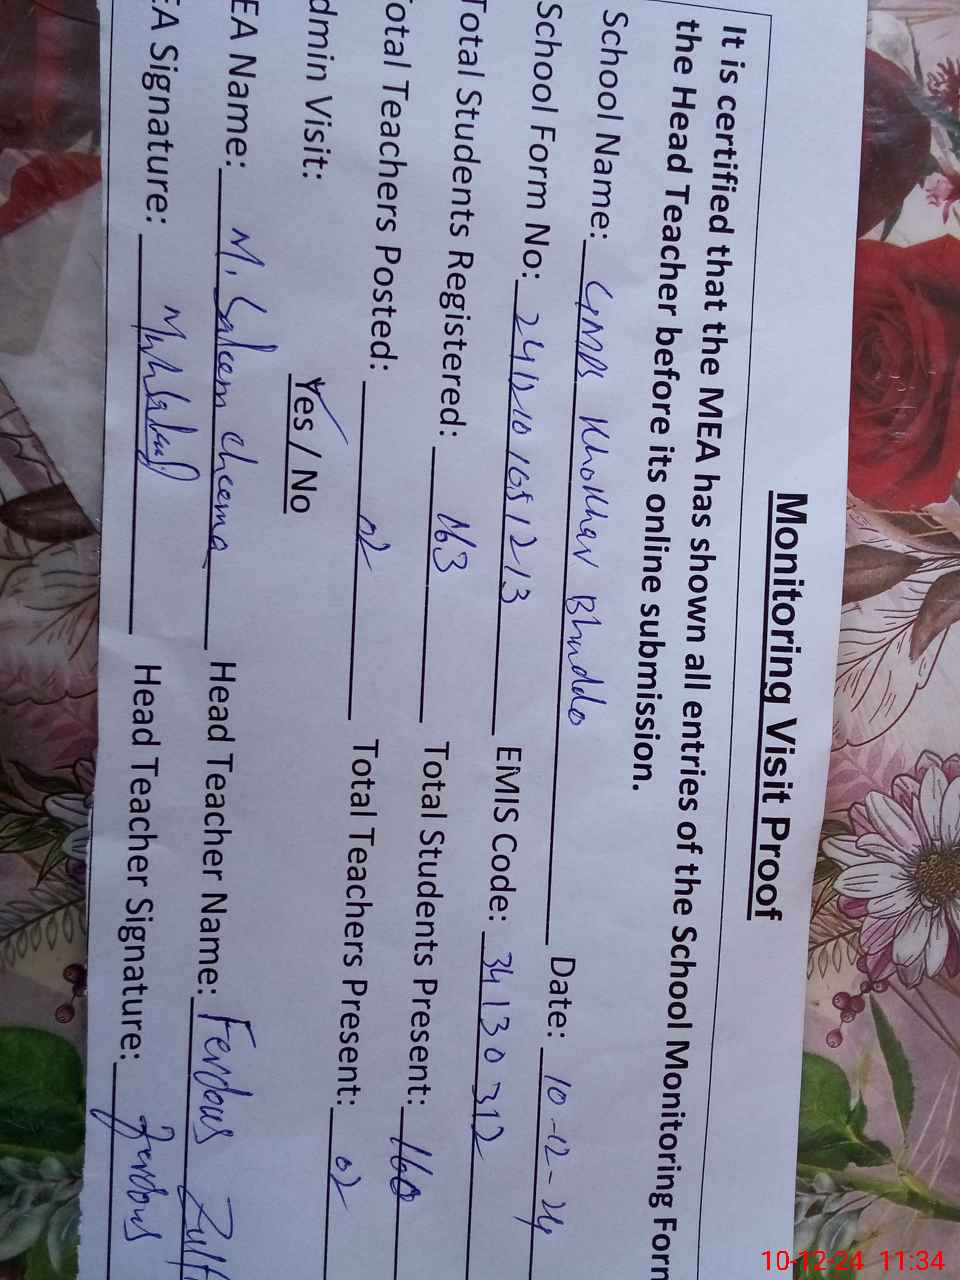 Monitoring Visit Proof
It is certified that the MEA has shown all entries of the School Monitoring Form
the Head Teacher before its online submission.
School Name: GMPS Khokhar Bhuddo Date: 10-12-24
School Form No: 2412101651213 EMIS Code: 34130312
Total Students Registered: 163 Total Students Present: 160
Total Teachers Posted: 02 Total Teachers Present: 02
dmin Visit: Yes / No
EA Name: M. Saleem Cheema Head Teacher Name: Ferdous Zulf
EA Signature: Head Teacher Signature: Ferdous
10-12-24 11:34